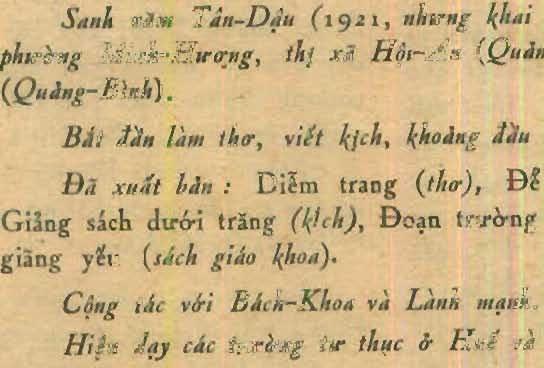 Sanh năm Tân-Dậu (1921, nhưng khai
phường Minh-Hương, thị xã Hội-An (Quản
(Quảng-Bình).
Bắt đầu làm thơ, viết kịch, khoảng đầu
Đã xuất bản : Diễm trang (thơ), Để
Giảng sách dưới trăng (kịch), Đoạn trường
giãng yếu (sách giáo khoa).
Cộng tác với Bách-Khoa và Lành mạnh.
Hiện dạy các trường tư thục ở Huế và